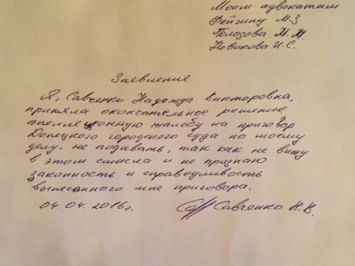 Моим адвокатам
Фейгину М.З
Полозова М.М
Новикова И.С.
Заявление
Я, Савченко Надежда Викторовна,
приняла окончательное решение
апелляционную жалобу на приговор
Донецкого городского суда по моему
делу не подавать, так как не вижу
в этом смысла и не признаю
законность и справедливость
вынесенного мне приговора.
04.04.2016г. Савченко Н.В.